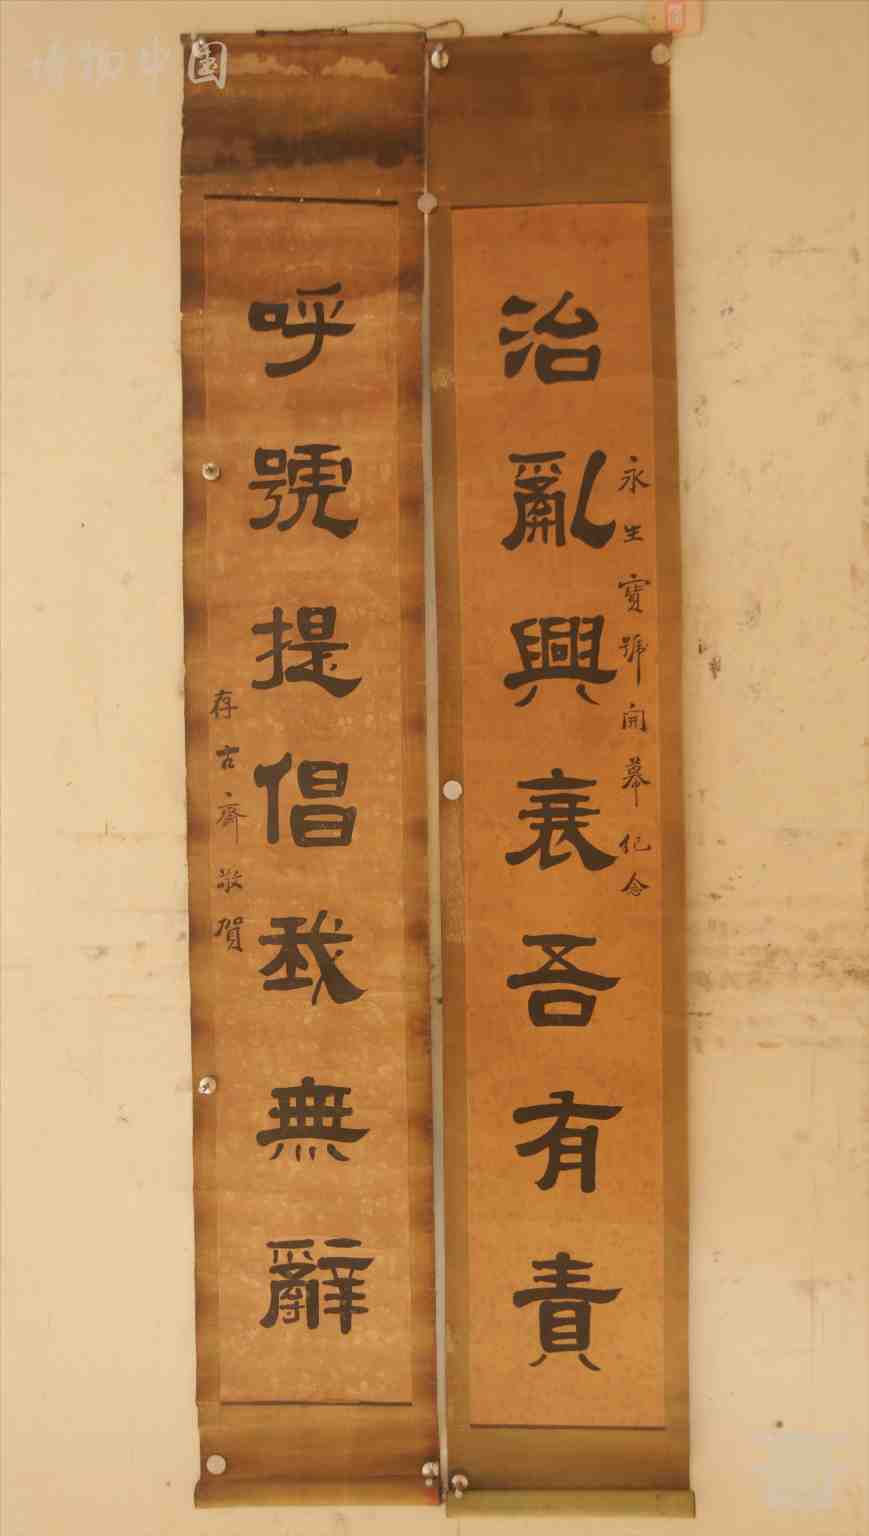 博物中国
永生寶號開幕纪念
治亂興衰吾有責
呼號提倡我無辭
存古齋敬賀